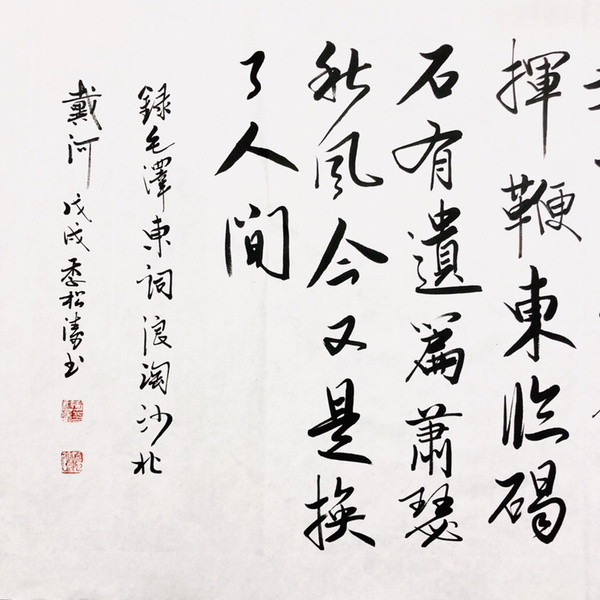 揮鞭東臨碣
石有遺篇蕭瑟
秋風今又是換
了人間
録毛澤東词浪淘沙北
戴河 戊戌季松濤书